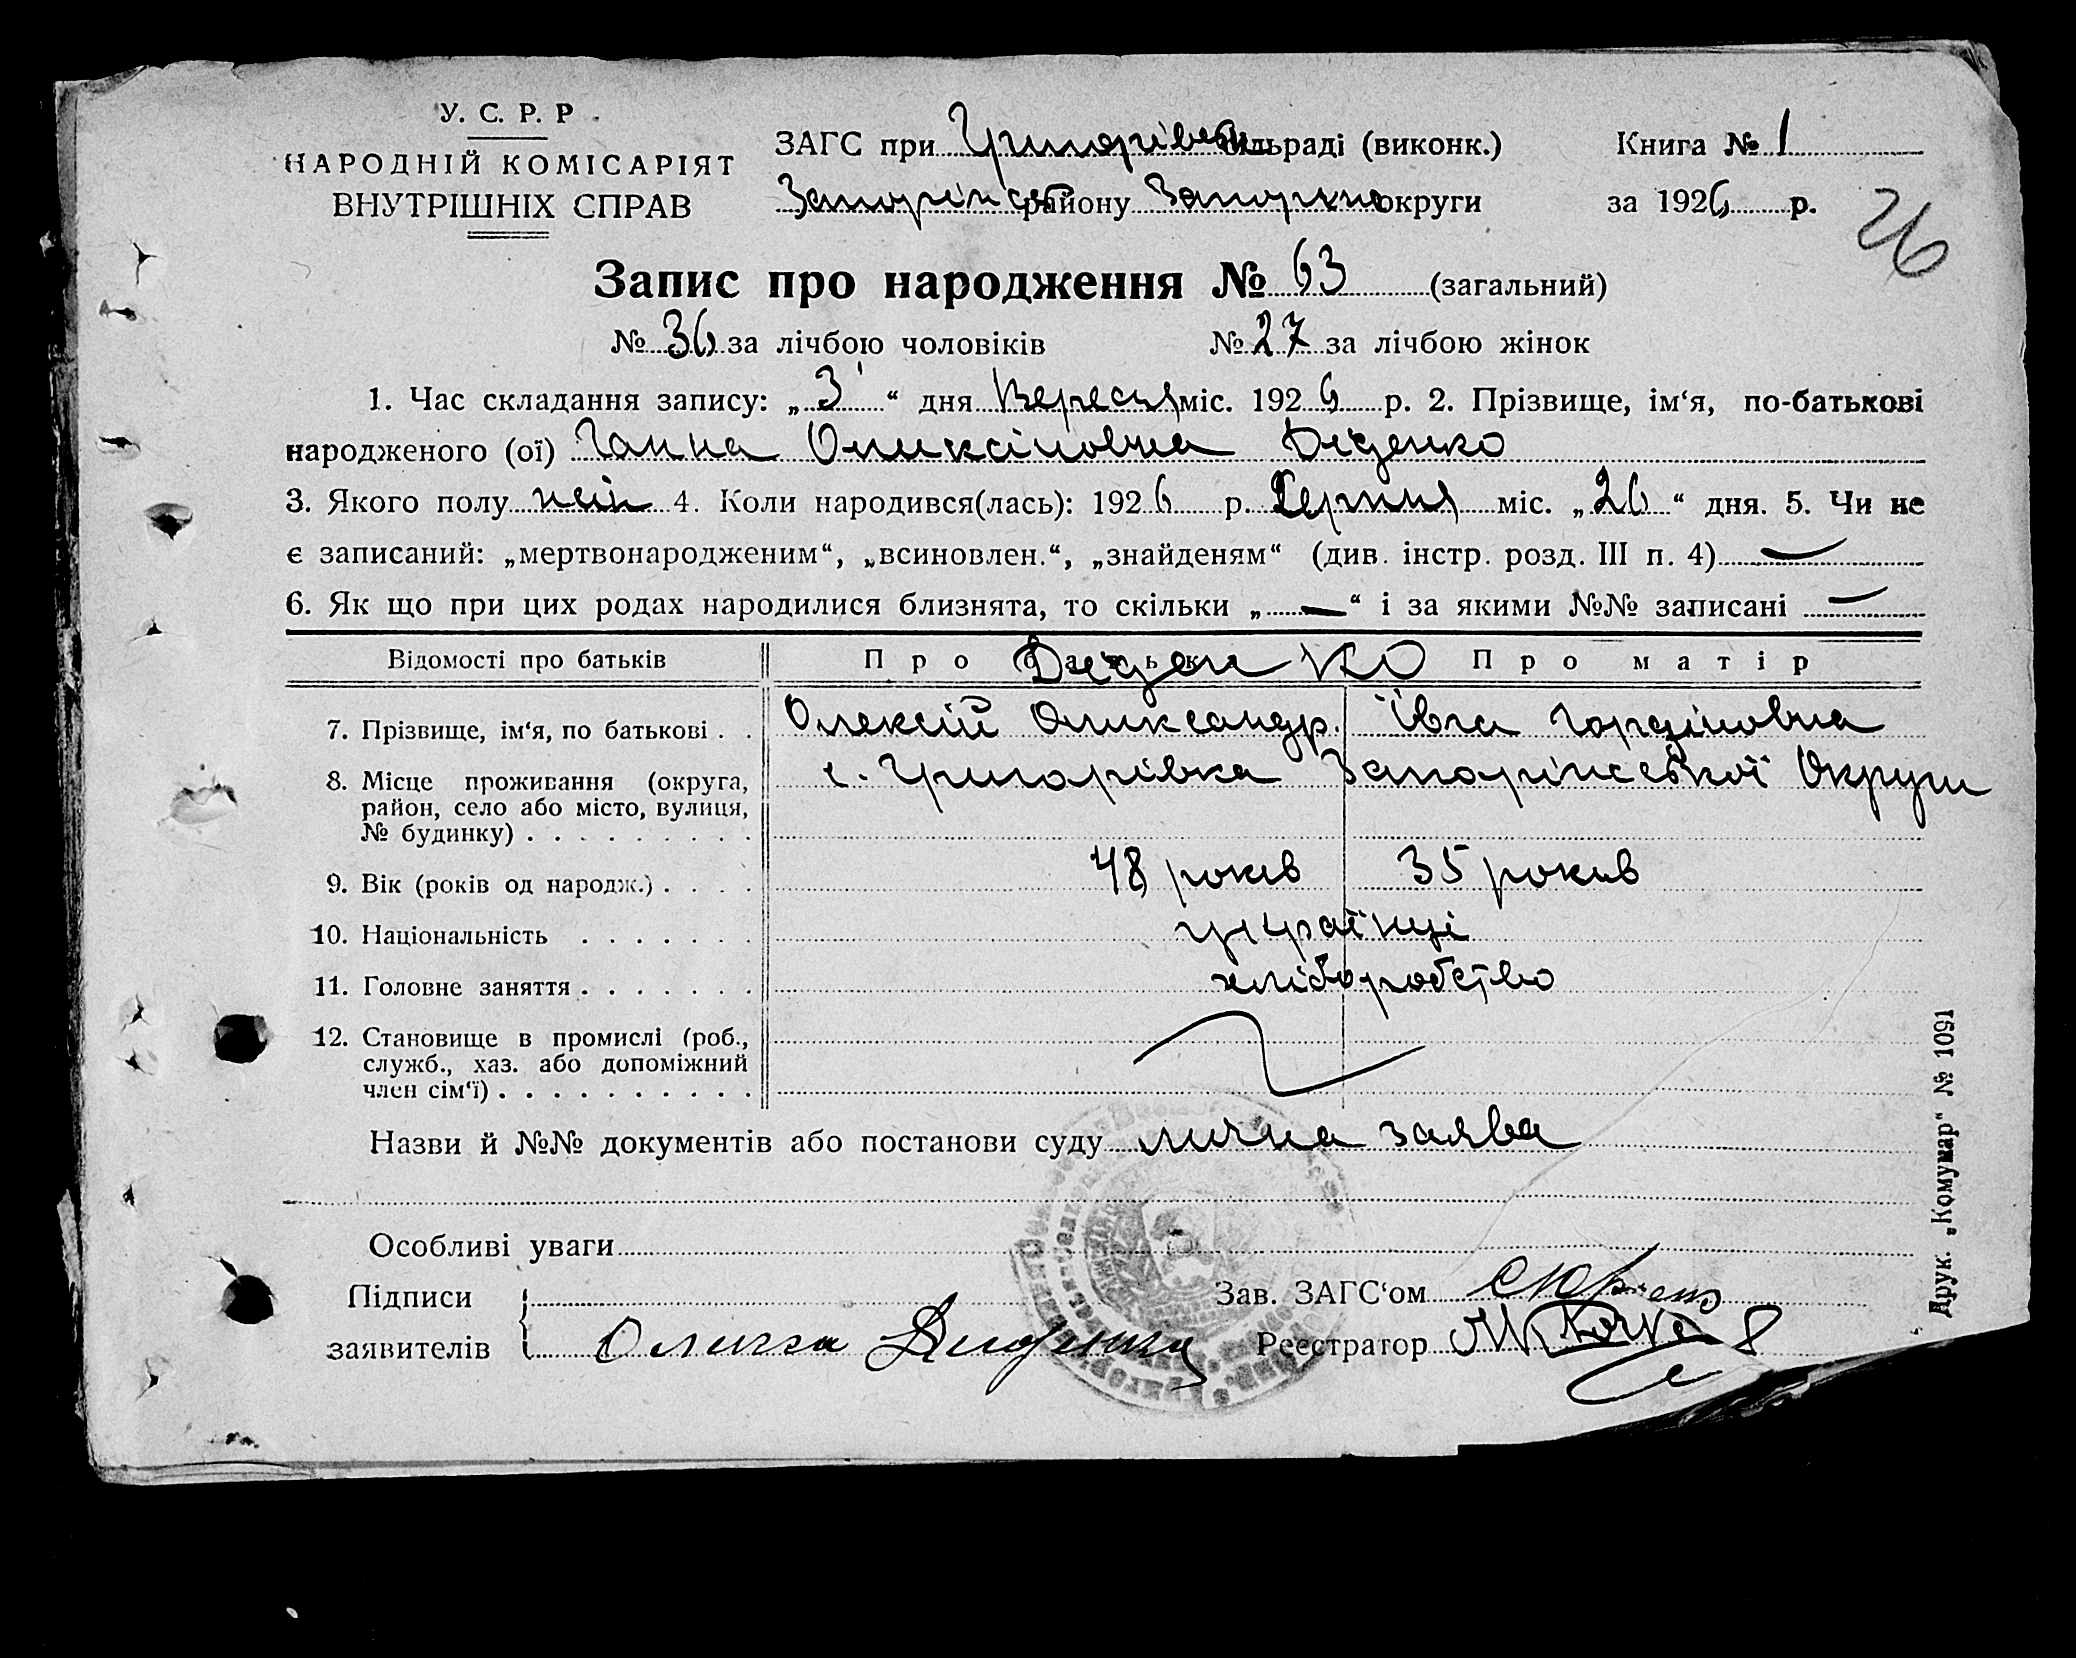 У. С. Р. Р.
НАРОДНІЙ КОМІСАРІЯТ
ВНУТРІШНІХ СПРАВ
ЗАГС при Григорівській сільраді (виконк.)
Запоріпськ району Запоріпс округи
Книга № 1
за 1926 р.
26
Запис про народження № 63 (загальний)
№ 36 за лічбою чоловіків № 27 за лічбою жінок
1. Час складання запису: „3“ дня Вересня міс. 1926 р. 2. Прізвище, ім‘я, по-батькові
народженого (ої) Ганна Оликсіповна Діденко
3. Якого полу жін 4. Коли народився(лась): 1926 р. Серпня міс. „26“ дня. 5. Чи не
є записаний: „мертвонародженим“, „всиновлен.“, „знайденям“ (див. інстр. розд. III п. 4) —
6. Як що при цих родах народилися близнята, то скільки „—“ і за якими №№ записані —
Відомості про батьків Про батька Про матір
Діденко
7. Прізвище, ім‘я, по батькові . . Олексій Олександр. Ївга Гордіповна
8. Місце проживання (округа, с. Григорівка Запоріпської Округи
район, село або місто, вулиця,
№ будинку) . . . . . . . . .
9. Вік (років од народж.) . . . . 48 років 35 років
10. Національність . . . . . . . українці
11. Головне заняття . . . . . . . хліборобство
12. Становище в промислі (роб.,
служб., хаз. або допоміжний
член сім‘ї) . . . . . . . . . .
Назви й №№ документів або постанови суду лична заява
Особливі уваги
Підписи
заявителів Олигза Дидинко
Зав. ЗАГС‘ом
Реєстратор
Друк. „Комунар“ № 1091